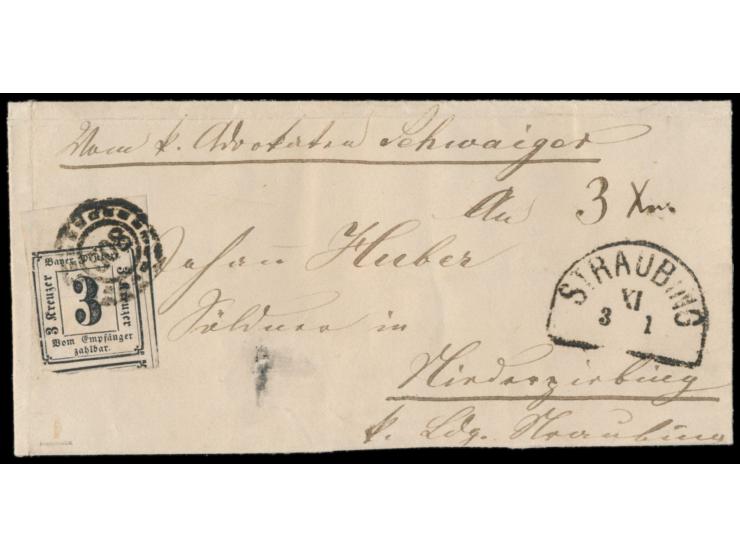 Vom k. Advokaten Schwaiger
An 3 Xr.
Johann Huber
Söldner in
Niederpiebing
k. Ldg. Straubing
Bayer. Posttaxe
3 Kreuzer
3
3 Kreuzer
Vom Empfänger
zahlbar.
STRAUBING
XI
3 1